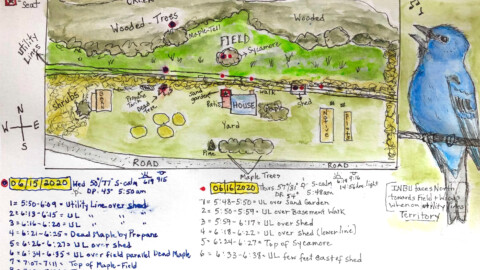 Seat
CREEK
Wooded-Trees
Wooded
Maple-Tall
FIELD
Sycamore
Utility
Lines
Shrubs
Propane
Tank
Dead Tree
Sand
garden
Patio
HOUSE
walk
shed
Native
Plants
Yard
Pine
N
W E
S
ROAD
Maple Trees
ROAD
06/15/2020 Wed 50°/77° S-calm 6:19 9:15
DP-43° 5:50am
1 = 5:50-6:09 = Utility Line over shed
2 = 6:13-6:15 = UL
3 = 6:16-6:20 = UL
4 = 6:21-6:25 = Dead Maple by Propane
5 = 6:26-6:27 = UL over shed
6 = 6:34-6:35 = UL over field parallel Dead Maple
7 = 7:07-7:11 = Top of Maple-Field
06/16/2020 57°/81° S-calm 6:19 9:16
DP 54° 5:48am light
1 = 5:48-5:50 = UL over Sand Garden
2 = 5:50-5:59 = UL over Basement Walk
3 = 5:59-6:17 = UL over shed
4 = 6:18-6:22 = UL over shed (lower line)
5 = 6:24-6:27 = Top of Sycamore
6 = 6:33-6:38 = UL few feet east of shed
INBU faces North
towards Field + Woods
when on utility lines
Territory